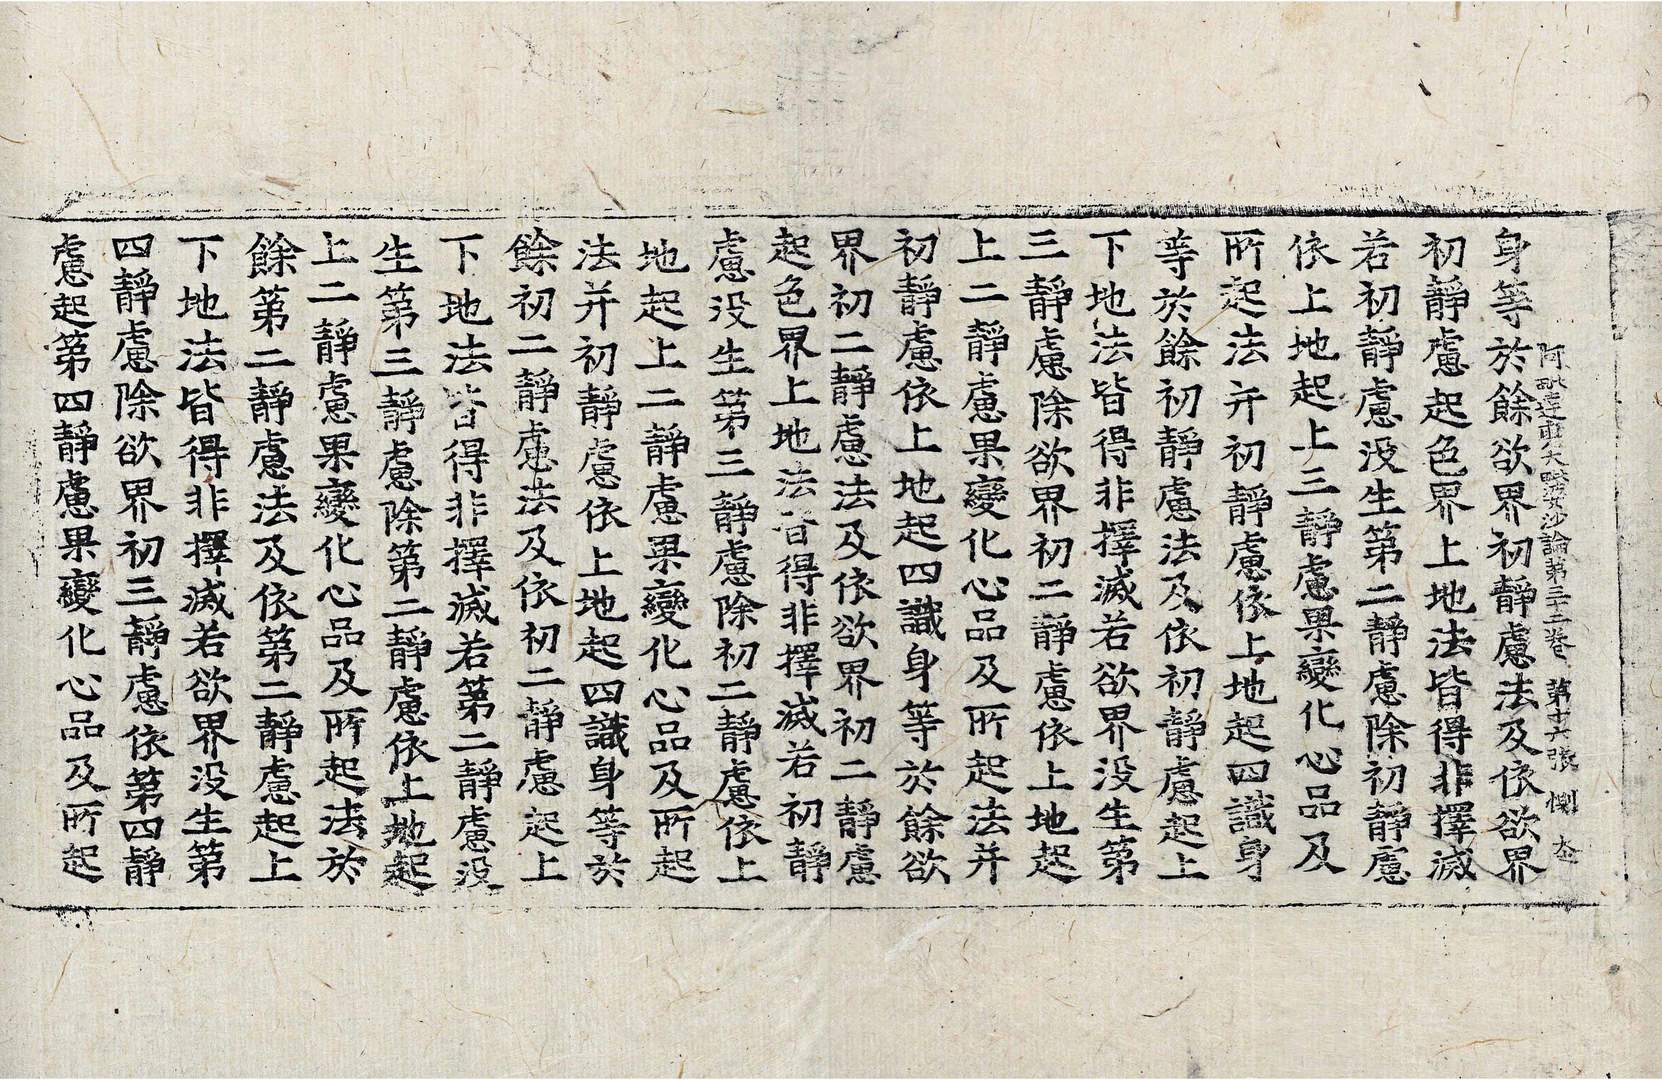 阿毗達磨大毗婆沙論第三十二卷 第十六張 惻
身等於餘欲界初靜慮法及依欲界
初靜慮起色界上地法皆得非擇滅
若初靜慮没生第二靜慮除初靜慮
依上地起上三靜慮果變化心品及
所起法并初靜慮依上地起四識身
等於餘初靜慮法及依初靜慮起上
下地法皆得非擇滅若欲界没生第
三靜慮除欲界初二靜慮依上地起
上二靜慮果變化心品及所起法并
初靜慮依上地起四識身等於餘欲
界初二靜慮法及依欲界初二靜慮
起色界上地法皆得非擇滅若初靜
慮没生第三靜慮除初二靜慮依上
地起上二靜慮果變化心品及所起
法并初靜慮依上地起四識身等於
餘初二靜慮法及依初二靜慮起上
下地法皆得非擇滅若第二靜慮没
生第三靜慮除第二靜慮依上地起
上二靜慮果變化心品及所起法於
餘第二靜慮法及依第二靜慮起上
下地法皆得非擇滅若欲界没生第
四靜慮除欲界初三靜慮依第四靜
慮起第四靜慮果變化心品及所起